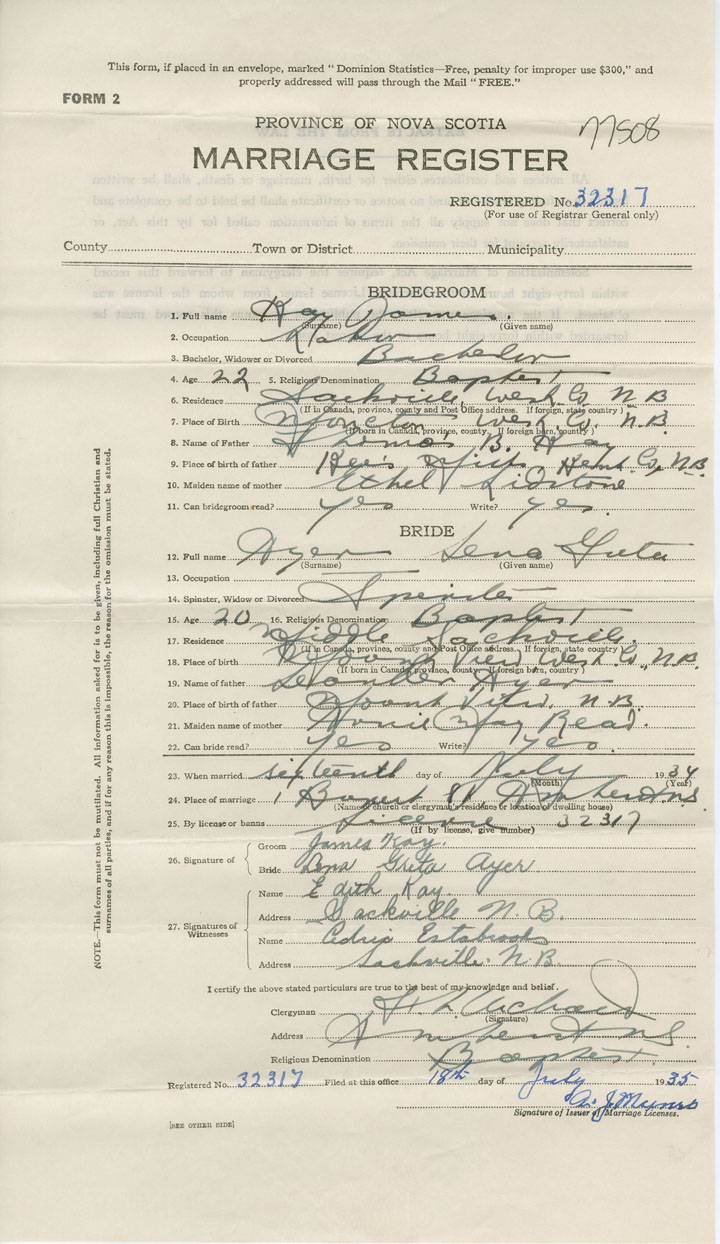 This form, if placed in an envelope, marked "Dominion Statistics—Free, penalty for improper use $300," and
properly addressed will pass through the Mail "FREE."
FORM 2
PROVINCE OF NOVA SCOTIA
77508
MARRIAGE REGISTER
REGISTERED No. 32317
(For use of Registrar General only)
County Town or District Municipality
BRIDEGROOM
1. Full name Kay James.
(Surname) (Given name)
2. Occupation
3. Bachelor, Widower or Divorced Bachelor
4. Age 22 5. Religious Denomination Baptist
6. Residence Sackville West. Co. N B
(If in Canada, province, county and Post Office address. If foreign, state country)
7. Place of Birth Moncton West. Co. N. B.
(If born in Canada, province, county. If foreign born, country)
8. Name of Father Thomas B. Kay
9. Place of birth of father Kent. Co, N B
10. Maiden name of mother Ethel Lidstone
11. Can bridegroom read? yes Write? yes.
BRIDE
12. Full name Ayer Lena Greta
(Surname) (Given name)
13. Occupation
14. Spinster, Widow or Divorced Spinster
15. Age 20 16. Religious Denomination Baptist
17. Residence Middle Sackville
(If in Canada, province, county and Post Office address. If foreign, state country)
18. Place of birth Mount View West. Co, N. B.
(If born in Canada, province, county. If foreign born, country)
19. Name of father Ayer
20. Place of birth of father Mount View. N. B.
21. Maiden name of mother May Read.
22. Can bride read? yes Write? yes.
23. When married sixteenth day of July 1934
(Month) (Year)
24. Place of marriage Amherst N S.
(Name of church or clergyman's residence or location of dwelling house)
25. By license or banns License 32317
(If by license, give number)
26. Signature of
Groom James Kay.
Bride Lena Greta Ayer
27. Signatures of Witnesses
Name Edith Kay.
Address Sackville N. B.
Name Cedric Estabrooks
Address Sackville N. B.
I certify the above stated particulars are true to the best of my knowledge and belief.
Clergyman
(Signature)
Address Amherst N S.
Religious Denomination Baptist.
Registered No. 32317 Filed at this office 18th day of July 1935
A. J. Munro
Signature of Issuer of Marriage Licenses.
[SEE OTHER SIDE]
NOTE.—This form must not be mutilated. All information asked for is to be given, including full Christian and
surnames of all parties, and if for any reason this is impossible, the reason for the omission must be stated.